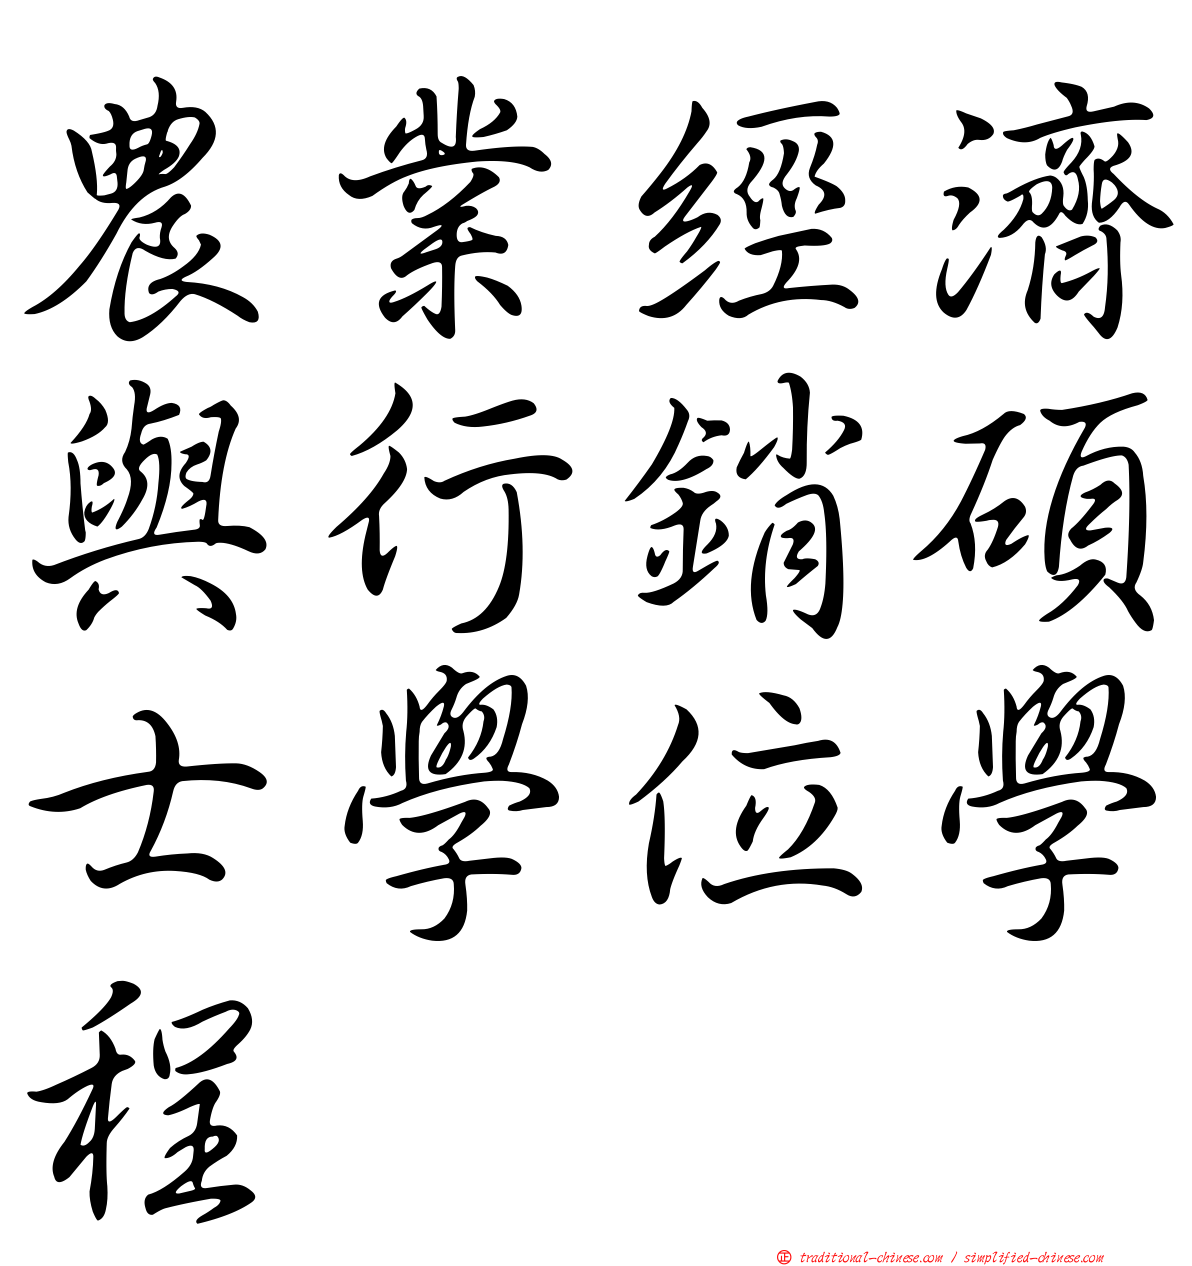 農業經濟
與行銷碩
士學位學
程
正 traditional-chinese.com / simplified-chinese.com